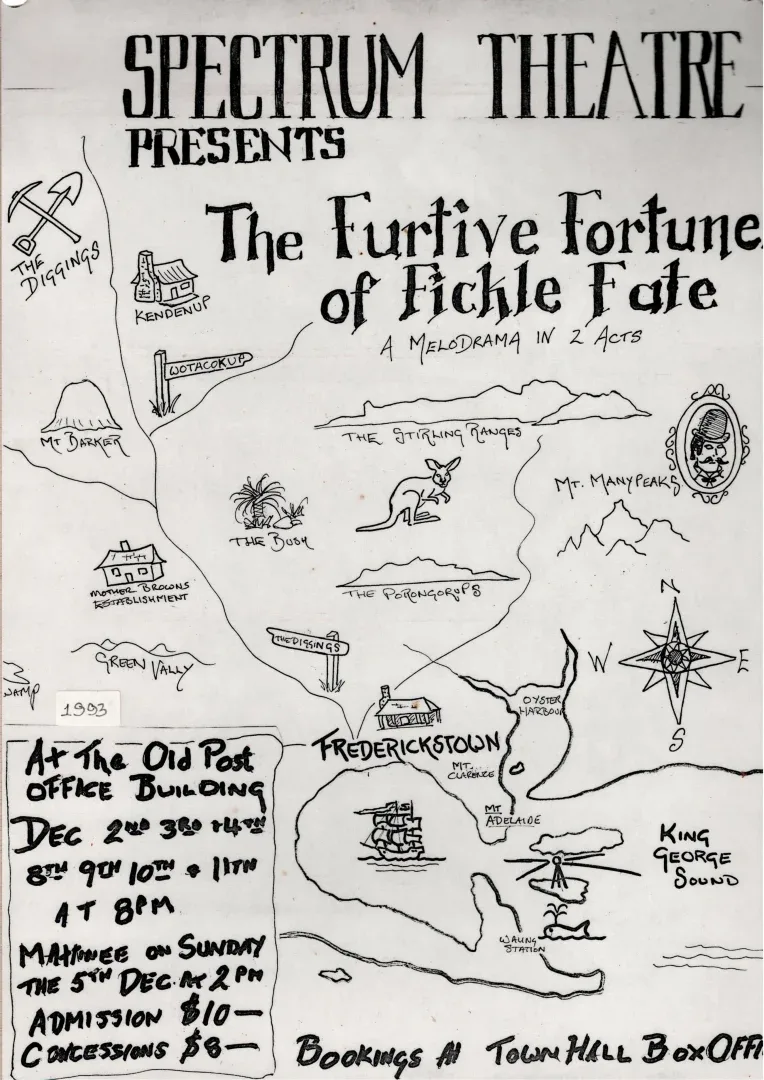 SPECTRUM THEATRE
PRESENTS
The Furtive Fortune
of Fickle Fate
A MELODRAMA IN 2 ACTS
THE
DIGGINGS
KENDENUP
WOTACOKUP
MT BARKER
THE STIRLING RANGES
MT. MANYPEAKS
THE BUSH
THE PORONGORUPS
MOTHER BROWNS
ESTABLISHMENT
GREEN VALLY
WAMP
THE DIGGINGS
N
W
E
S
OYSTER
HARBOUR
1993
FREDERICKSTOWN
MT.
CLARENCE
MT
ADELAIDE
KING
GEORGE
SOUND
WALING
STATION
At The Old Post
OFFICE BUILDING
DEC 2ND 3RD +4TH
8TH 9TH 10TH + 11TH
AT 8PM
MATINEE ON SUNDAY
THE 5TH DEC AT 2PM
ADMISSION $10—
CONCESSIONS $8—
BOOKINGS At TOWN HALL BOX OFFI